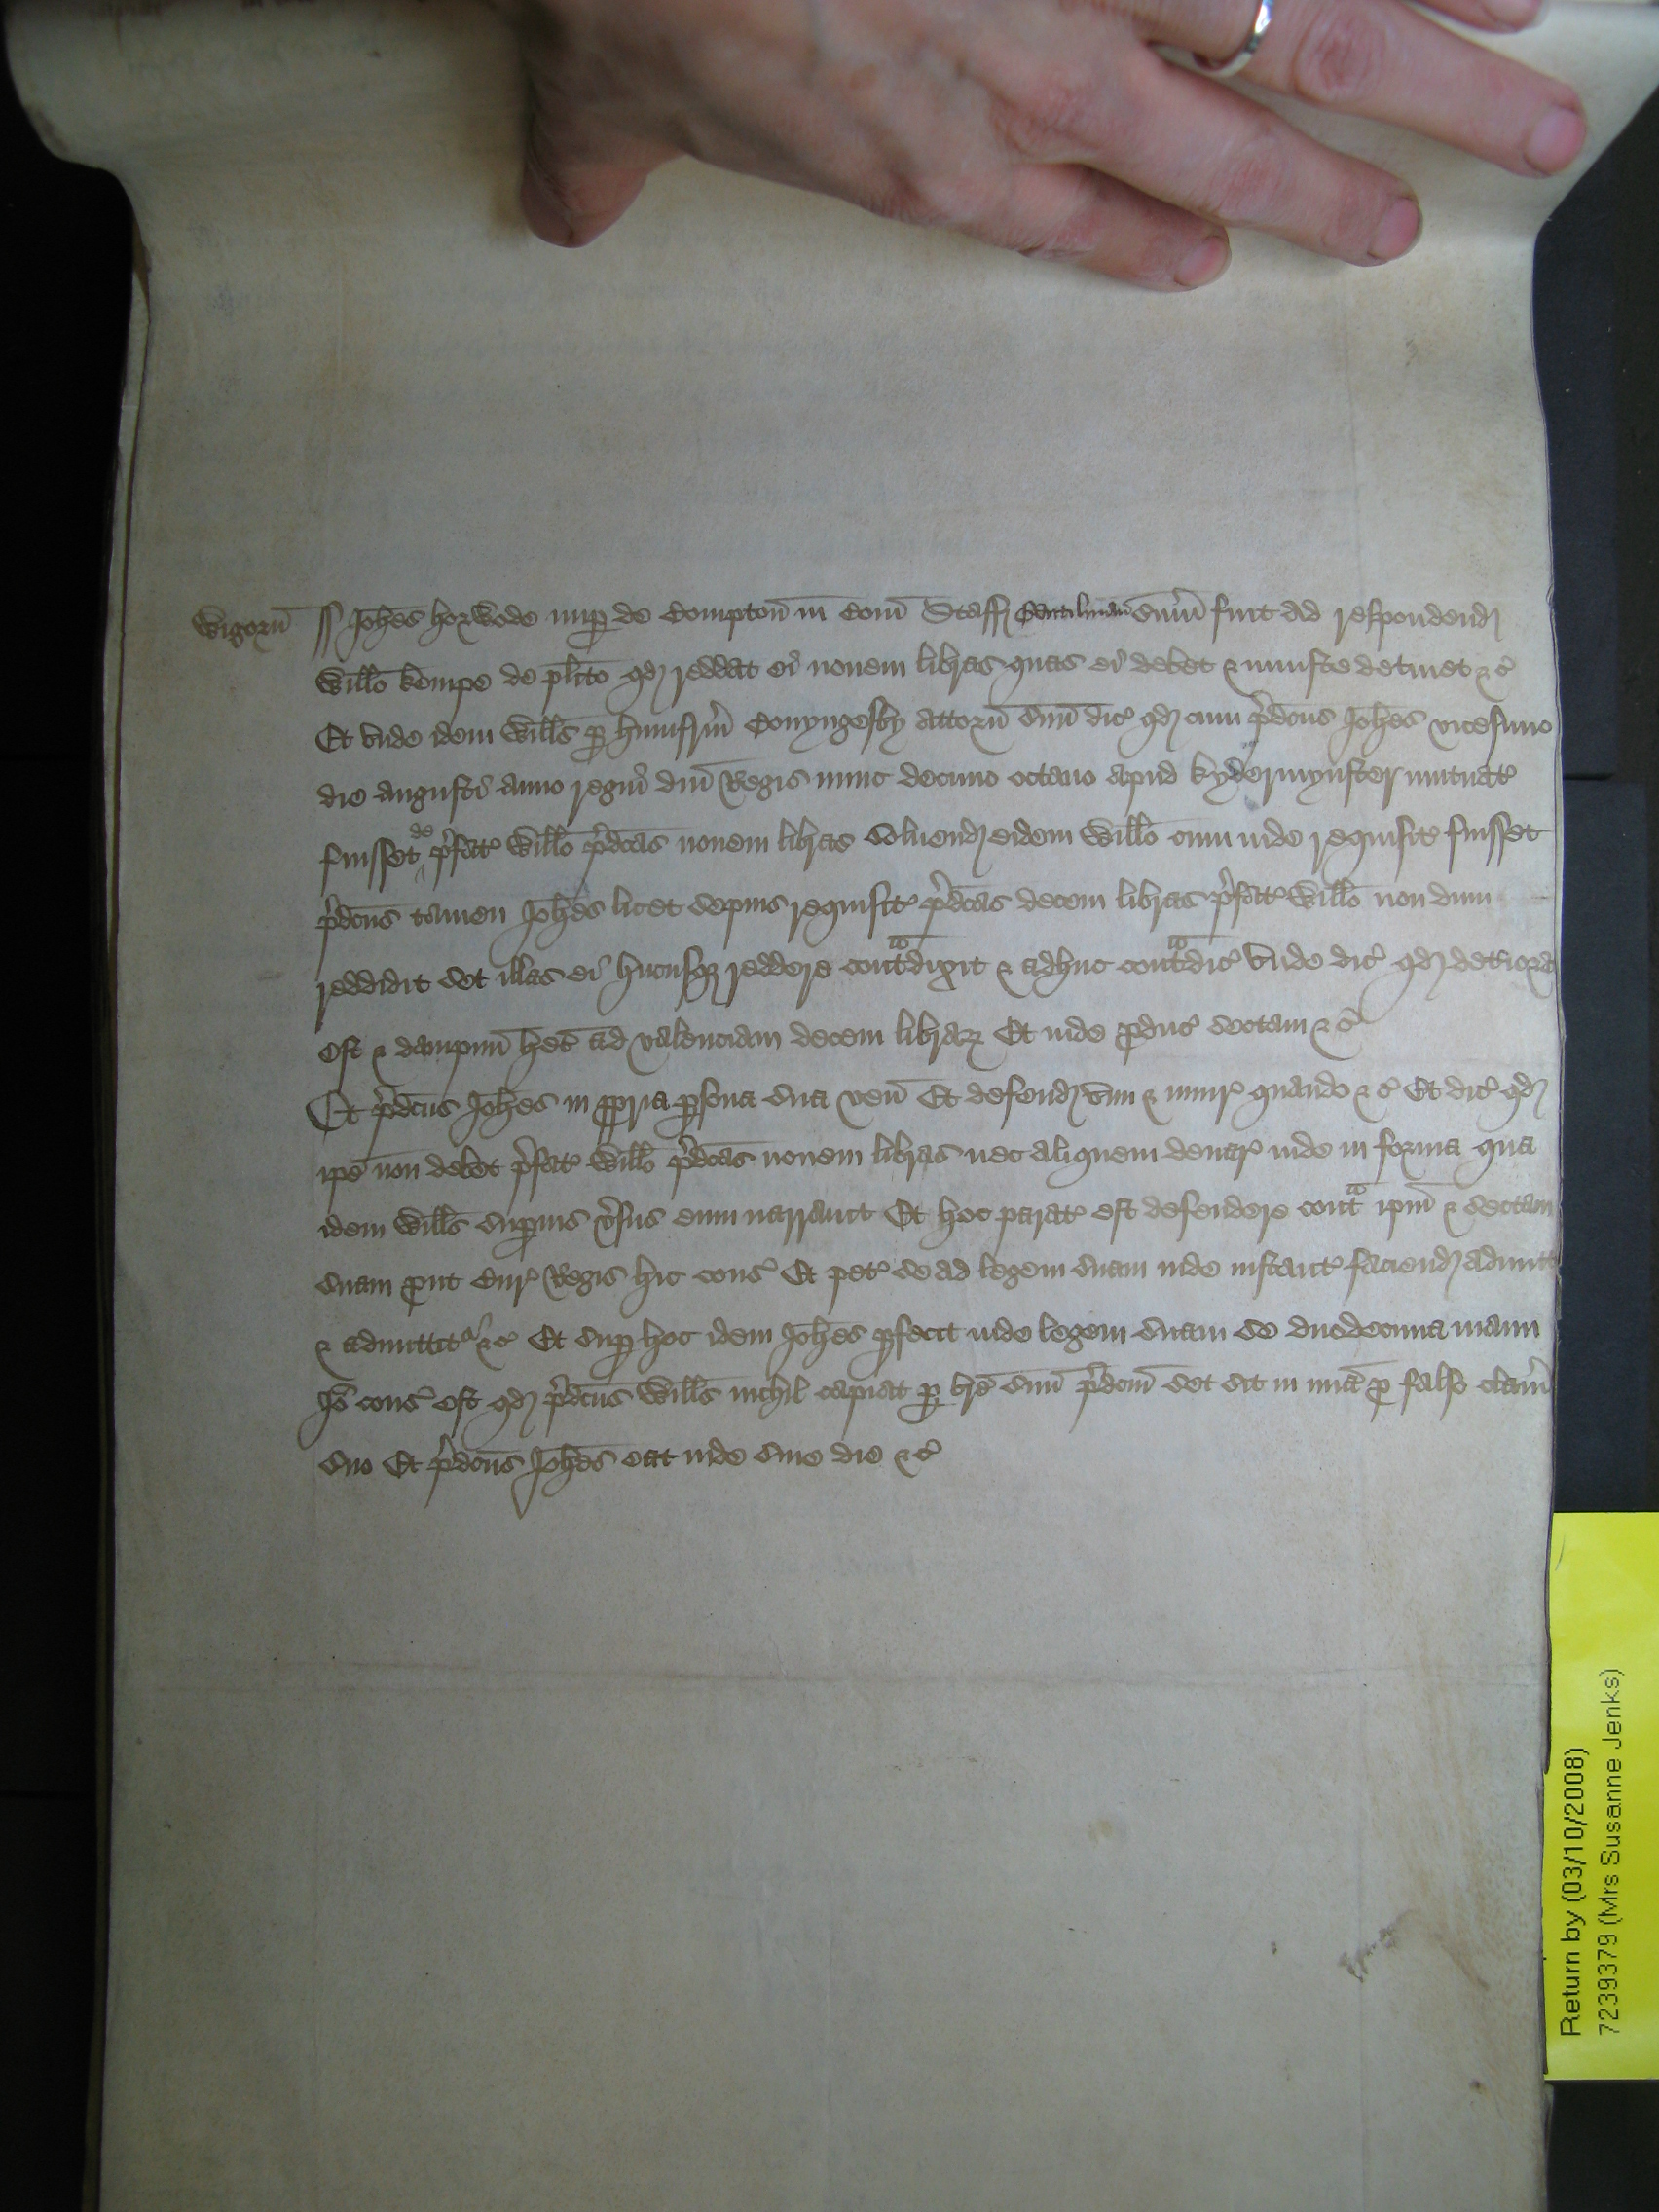 Wigorn̄ ss Joh̄es horwode nup̱ de Compton̄ in Com̄ Staff Gentilman sum̄ fuit ad respondend
Will̄o kempe de pl̄ito qd reddat ei nouem libras quas ei debet & iniuste detinet &c̉
Et vnde idem Will̄s p̱ humfrm̄ Conyngesby attorn̄ suū dic̉ qd cum p̉dc̄us Joh̄es vicesimo
die augusti anno regni dn̄i Regis nunc decimo octauo apud kydermynster mutuat̉
fuisset de p̉fat̉ Will̄o p̉dc̄as nouem libras Soluend eidem Will̄o cum inde requisit̉ fuisset
p̉dc̄us tamen Joh̄es licet sepius requisit̉ p̉dc̄as decem libras p̉fat̉ Will̄o nondum
reddidit set ill̄as ei hucusqꝫ reddere contᵃdixit & adhuc contᵃdic̉ vnde dic̉ qd deteriora
est & dampnū het̄ ad valenciam decem libraꝝ Et inde ꝓduc̉ sectam &c̉
Et p̉dc̄us Joh̄es in ꝓpria p̱sona sua ven̄ Et defend vim & iniur̉ quando &c̉ Et dic̉ qd
ip̄e non debet p̉fat̉ Will̄o p̉dc̄as nouem libras nec aliquem denar̉ inde in forma qua
idem Will̄s sup̱ius v̉sus eum narrauit Et hoc parat̉ est defendere contᵃ ip̄m & sectam
suam ꝓut Cur̉ Regis hic cons̉ Et pet̉ se ad legem suam inde instant̉ faciend admitt
& admittitᵃʳ &c̉ Et sup̱ hoc idem Joh̄es p̱fecit inde legem suam se duodecima manu
Jō cons̉ est qd p̉dc̄us Will̄s nichil capiat p̱ br̄e suū p̉dc̄m set sit in mīa ꝓ falso clam̄
suo Et p̉dc̄us Joh̄es eat inde sine die &c̉
Return by (03/10/2008)
7239379 (Mrs Susanne Jenks)